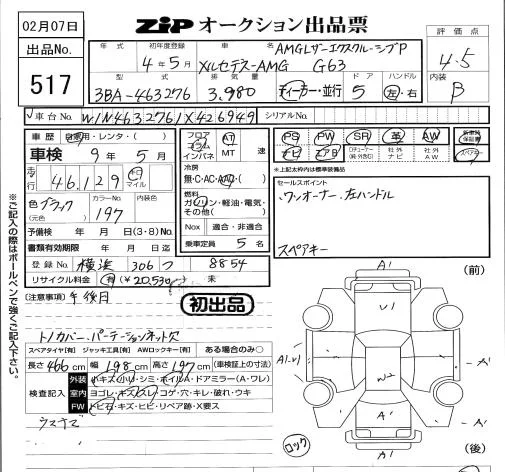 02月07日
出品No.
517
ZiP オークション出品票
年式
初年度登録
4年5月
車名
AMGレザーエクスクルーシブP
メルセデス-AMG G63
評価点
4.5
型式
3BA-463276
排気量
3,980
ディーラー・並行
ドア
5
ハンドル
左・右
内装
B
車台No. W1N4632761X426949
シリアルNo.
車歴 自家用・レンタ・( )
車検 9年5月
走行 46,129 km マイル
色 ブラック
(元色)
カラーNo.
197
内装色
予備検 年 月 日(3・8)No.
書類有効期限 年 月 日迄
登録No. 横浜 306 つ 8854
リサイクル料金 有(¥20,530) 未
フロア
コラム
インパネ
AT
MT 速
冷房
無・C・AC・AAC・( )
燃料
ガソリン・軽油・電気・
その他( )
Nox 適合・非適合
乗車定員 5 名
PS PW SR 革 AW
ナビ エアB
社外
ナビ
社外
AW
新車時
保証書
スペアキー
*上記太枠内は標準装備品
セールスポイント
ワンオーナー、左ハンドル
スペアキー
(注意事項)
初出品
トノカバー・パーテーションネット欠
スペアタイヤ[有] ジャッキ工具[有] AWロックキー[有] ある場合のみ○
長さ 466 cm 幅 198 cm 高さ 197 cm (車検証上の寸法)
検査記入
外装 小キズ・小U・シミ・ホイルA・ドアミラー(A・ワレ)
室内 ヨゴレ・キズ・スレ・コゲ・穴・キレ・破れ・ウキ
FW トビ石・キズ・ヒビ・リペア跡・X要ス
ウスキズ
※ご記入の際はボールペンで強くご記入下さい。
(前)
A1
U1
A1
A1
ロック
(後)